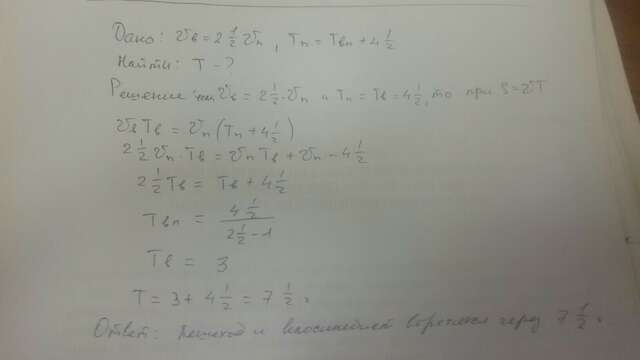 Дано: Vв = 2 1/2 Vп, Tп = Tвп + 4 1/2
Найти: T - ?
Решение Vв = 2 1/2 · Vп и Tп = Tв = 4 1/2, то при S = VT
VвTв = Vп (Tп + 4 1/2)
2 1/2 Vп · Tв = Vп Tв + Vп - 4 1/2
2 1/2 Tв = Tв + 4 1/2
Tвп = (4 1/2) / (2 1/2 - 1)
Tв = 3
T = 3 + 4 1/2 = 7 1/2 .
Ответ: Пешеход и велосипедист через 7 1/2 .